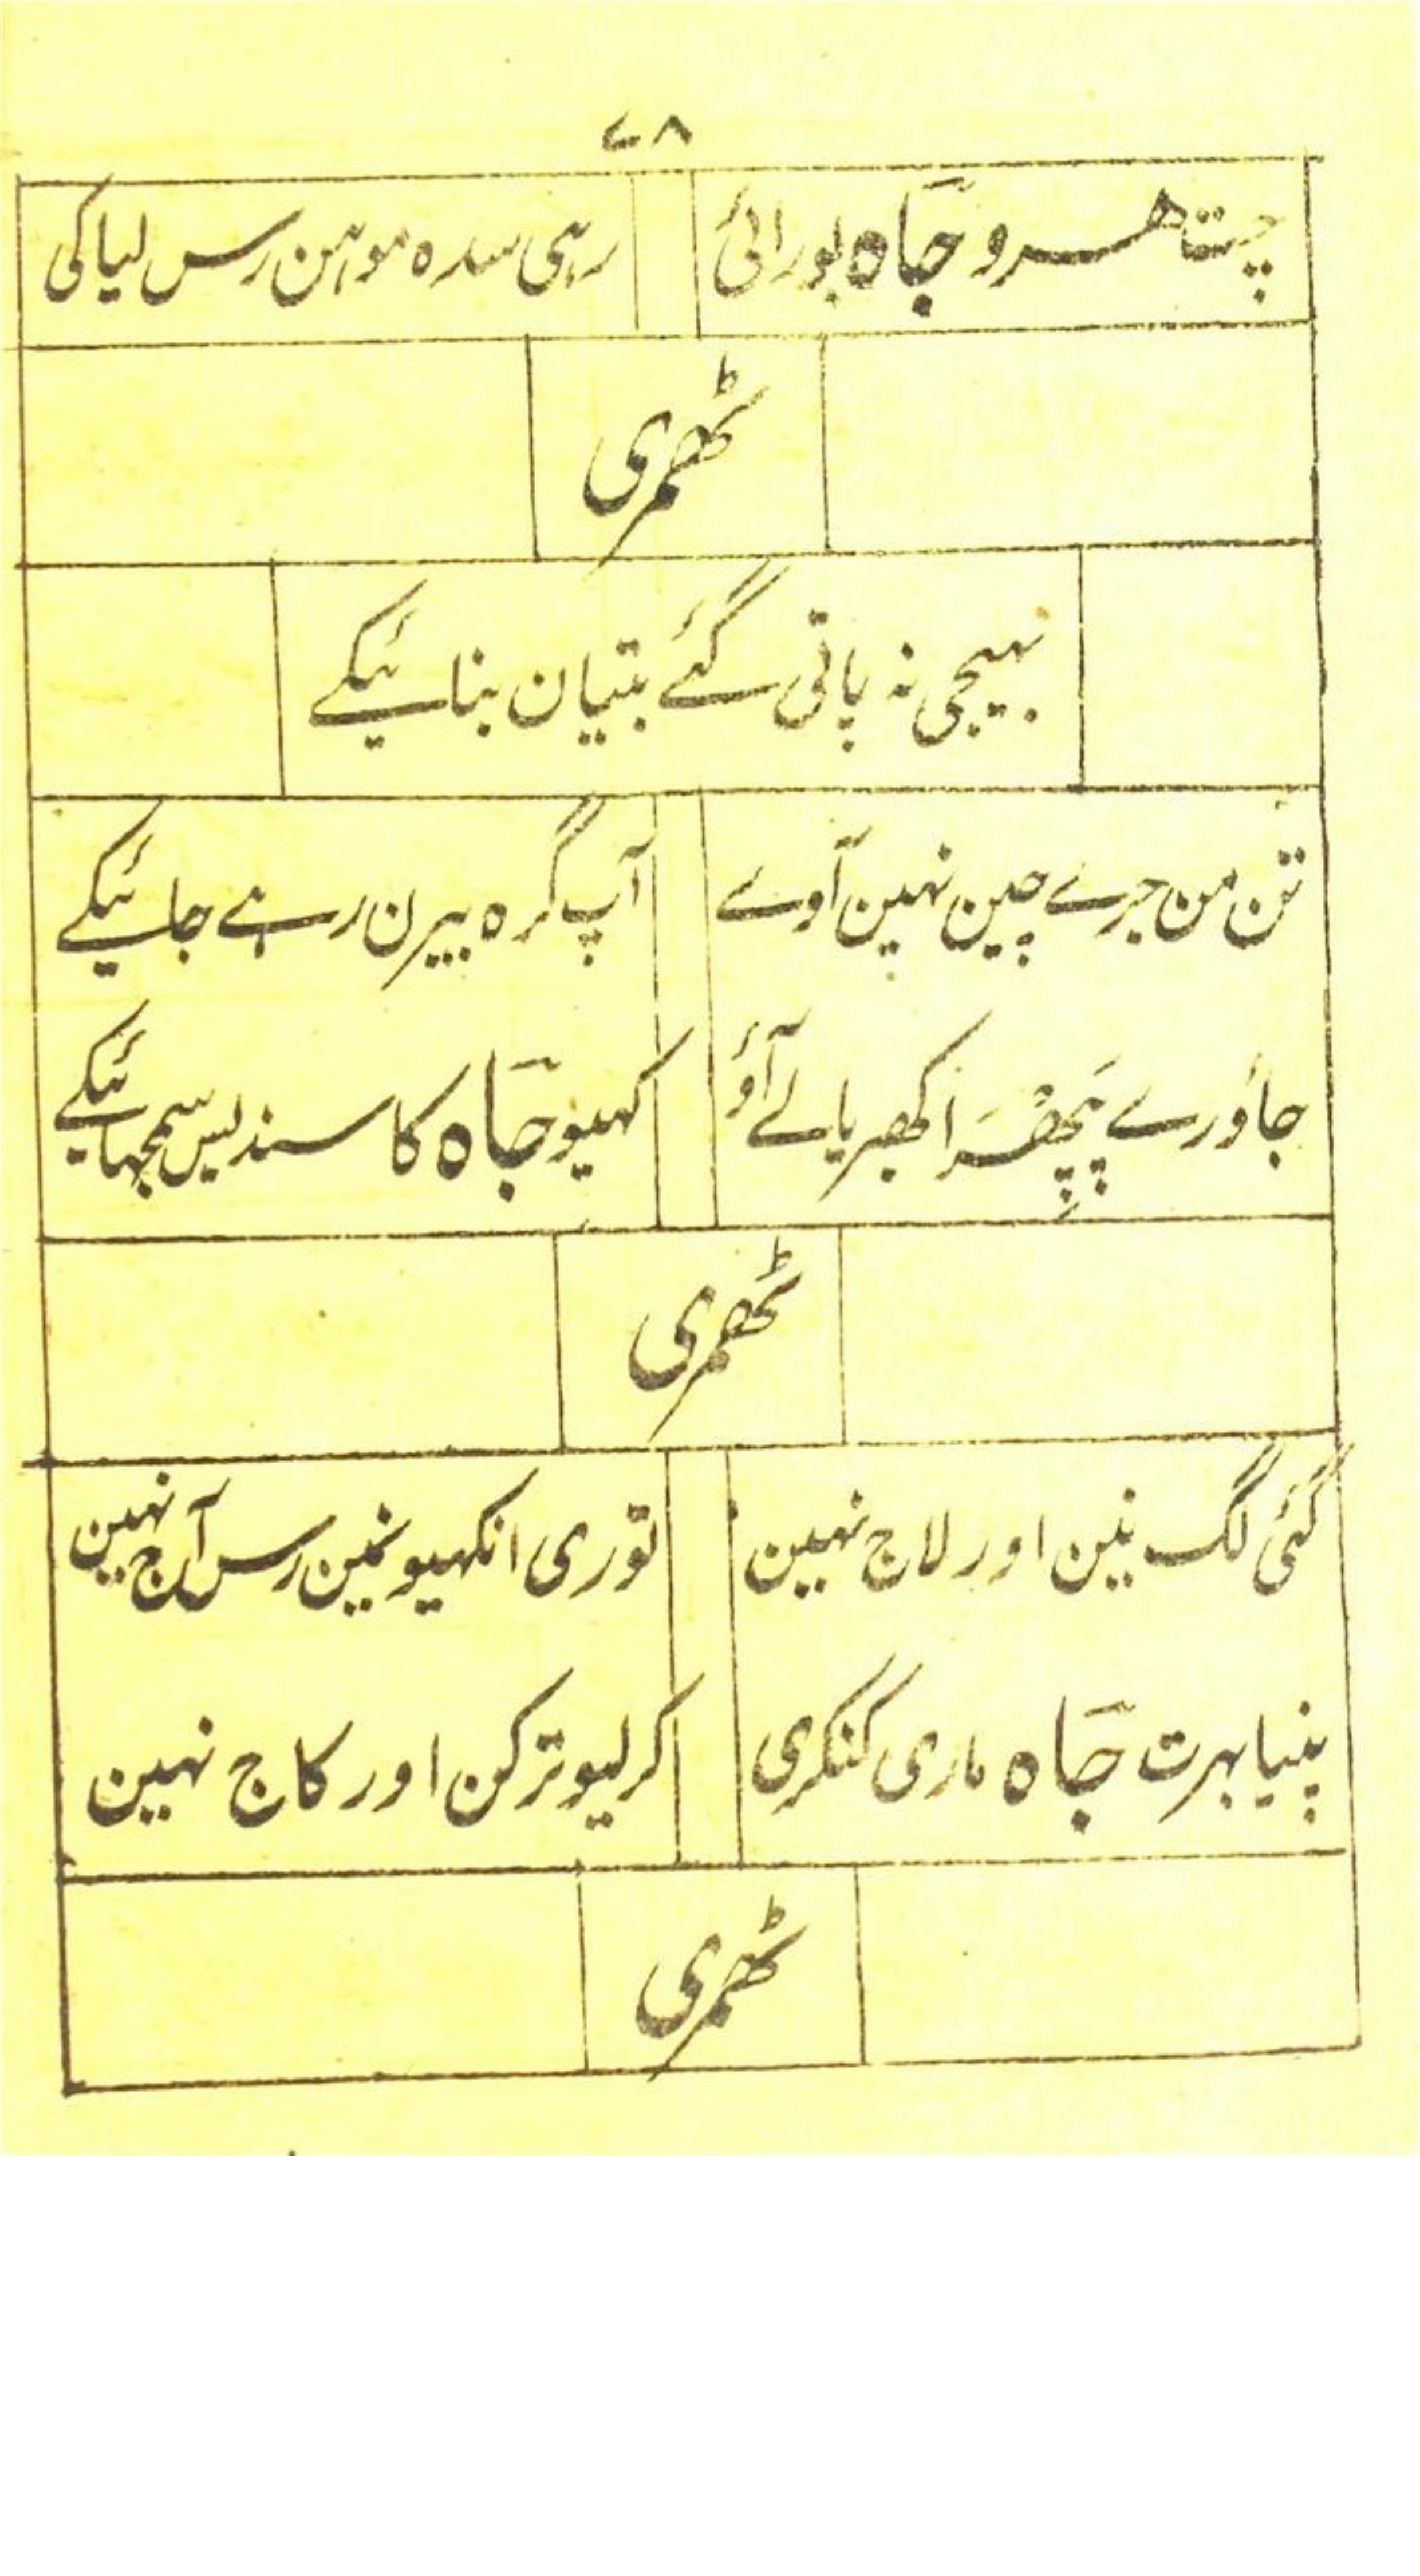 ۷۸
چت ھرو جَاہ بورائی رہی سدہ موہن رس لیا کی
ٹھمری
بہیجی نہ پاتی گئے بتیان بنائیکے
تن من جرے چین نہین آوے آپ گرہ بیرن رہے جائیکے
جاؤ رے اکھریا لے آؤ کہیو جَاہ کا سندیس سمجہائیکے
ٹھمری
گئی لگ نین اور لاج نہین توری انکہیونمین رس آج نہین
پنیا بہرت جَاہ ماری کنکری کر لیو ترکن اور کاج نہین
ٹھمری